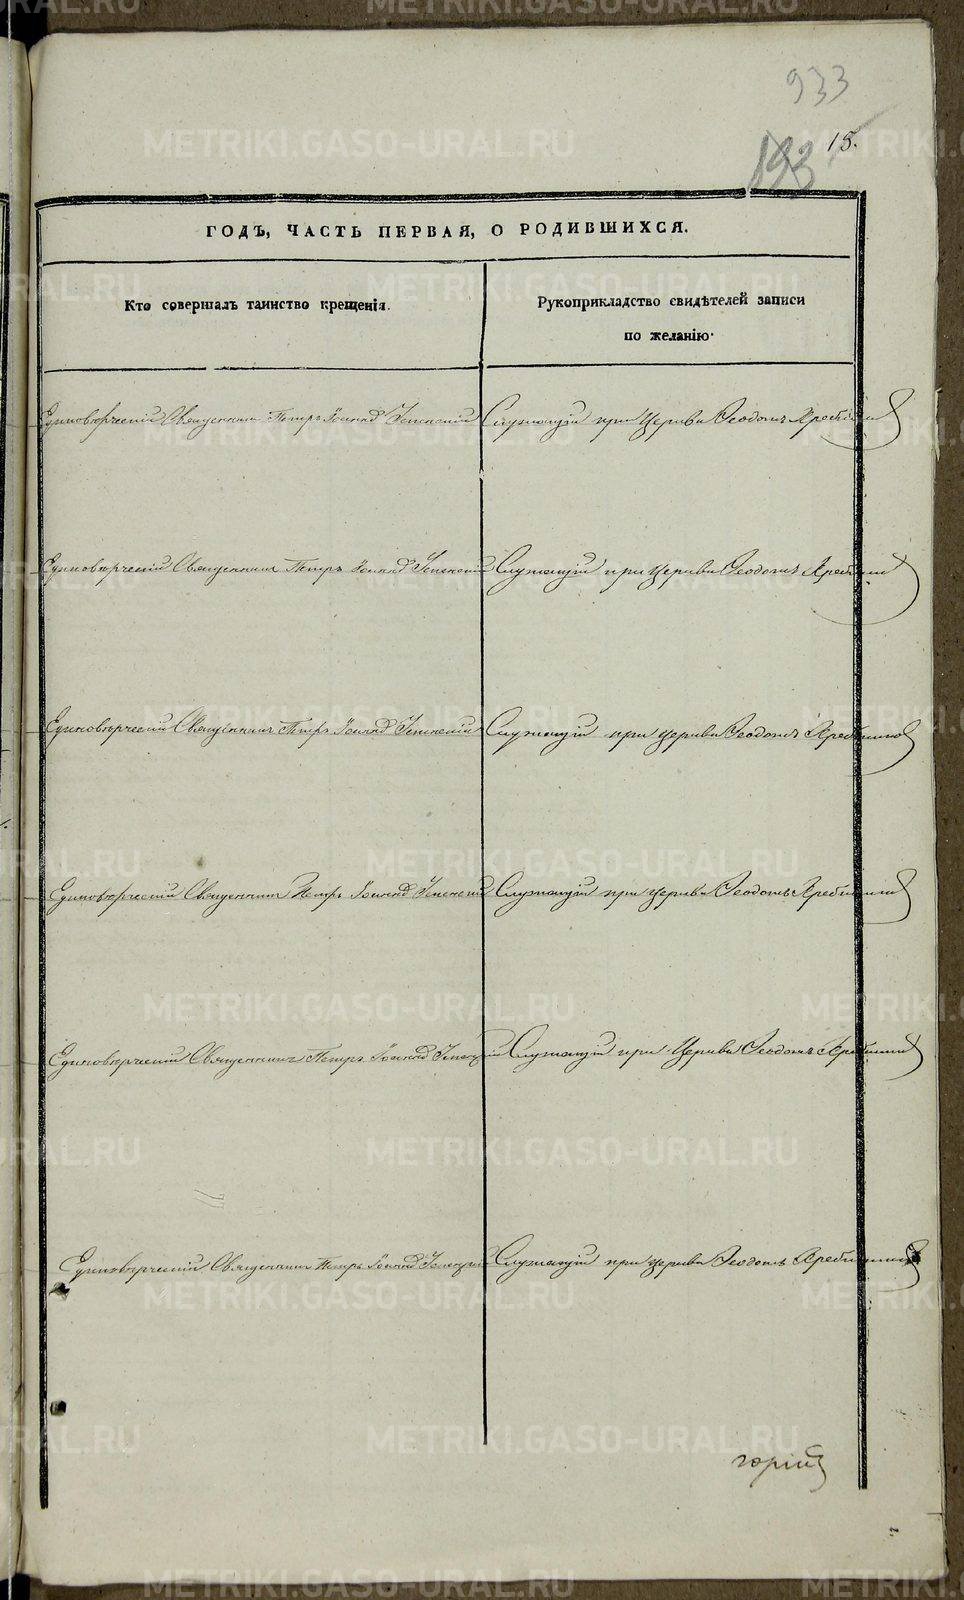 933
193 15.
ГОДЪ, ЧАСТЬ ПЕРВАЯ, О РОДИВШИХСЯ.
Кто совершалъ таинство крещенія.
Рукоприкладство свидѣтелей записи
по желанію.
Единовѣрческій Священникъ Петръ Іоанновъ Успенскій Служащій при Церкви Ѳеодотъ
Единовѣрческій Священникъ Петръ Іоанновъ Успенскій Служащій при Церкви Ѳеодотъ
Единовѣрческій Священникъ Петръ Іоанновъ Успенскій Служащій при Церкви Ѳеодотъ
Единовѣрческій Священникъ Петръ Іоанновъ Успенскій Служащій при Церкви Ѳеодотъ
Единовѣрческій Священникъ Петръ Іоанновъ Успенскій Служащій при Церкви Ѳеодотъ
Единовѣрческій Священникъ Петръ Іоанновъ Успенскій Служащій при Церкви Ѳеодотъ
горій
METRIKI.GASO-URAL.RU